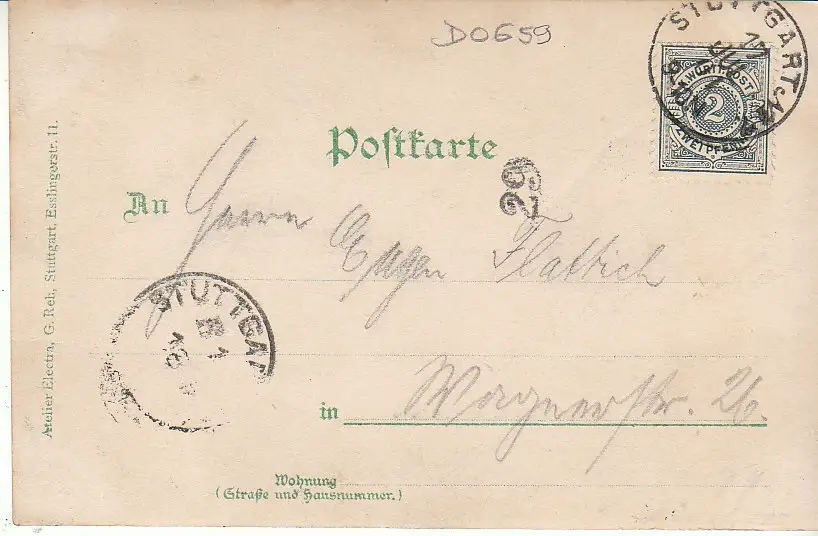 DOG59
STUTTGART
K. WÜRTT. POST
2
ZWEI PFENNIG
Poſtkarte
29
An Herrn Eugen Flattich
STUTTGA
1
in Wagnerstr. 26.
Wohnung
(Straße und Hausnummer.)
Atelier Electra, G. Reh, Stuttgart, Esslingerstr. 11.